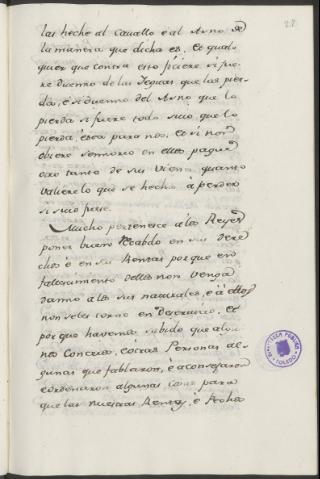 28
las heche al Cauallo ó al Asno de
la manera que dicha es. Et qual
quier que contra esto ficiere si fue
re duenno de las Yeguas que las pier
da, é si duenno del Asno que lo
pierda si fuere todo suio, que lo
pierda é sea para nos. Et si non
obiere sennorio en ellos pague
otro tanto de sus vienes quanto
valiere lo que se hechó á perder
si suio fuese.
Mucho pertenesce a los Reyes
poner buen Recabdo en sus dere
chos é en sus Rentas porque en
fallescimiento dellas non venga
danno a los sus naturales, é á ellos
non se les torne en deservicio. Et
porque havemos sabido que algu
nos Concejos, é otras Personas al
gunas que fablaron, é aconsejaron
é ordenaron algunas cosas para
que las nuestras Rentas, é Pechos
BIBLIOTECA PUBLICA
TOLEDO